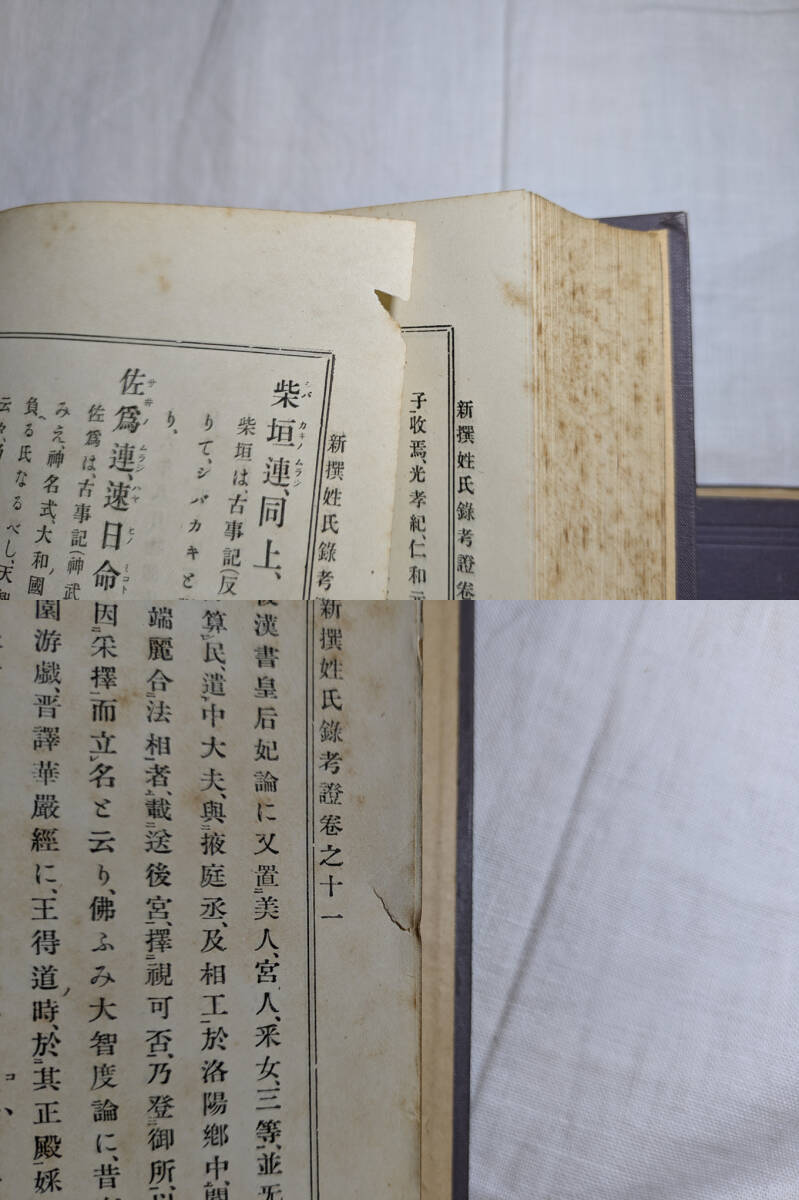 新撰姓氏錄考證卷
子收焉、光孝紀、仁和元
新撰姓氏錄考
柴垣連、同上、
シバ カキノ ムラジ
柴垣は、古事記(反
りて、シバカキと
り、
佐爲連、速日命
サヰノ ムラジ ハヤ ヒノ ミコト
佐爲は、古事記(神武
みえ、神名式、大和國
負る氏なるべし、天智
新撰姓氏錄考證卷之十一
後漢書皇后妃論に又置美人、宮人、采女、三等、並无
算民、遣中大夫、與掖庭丞、及相工、於洛陽鄕中、閱
端麗合法相者、載送後宮、擇視可否、乃登御所、以
因采擇而立名と云り、佛ふみ大智度論に、昔
園游戲、晋譯華嚴經に、王得道時、於其正殿、婇